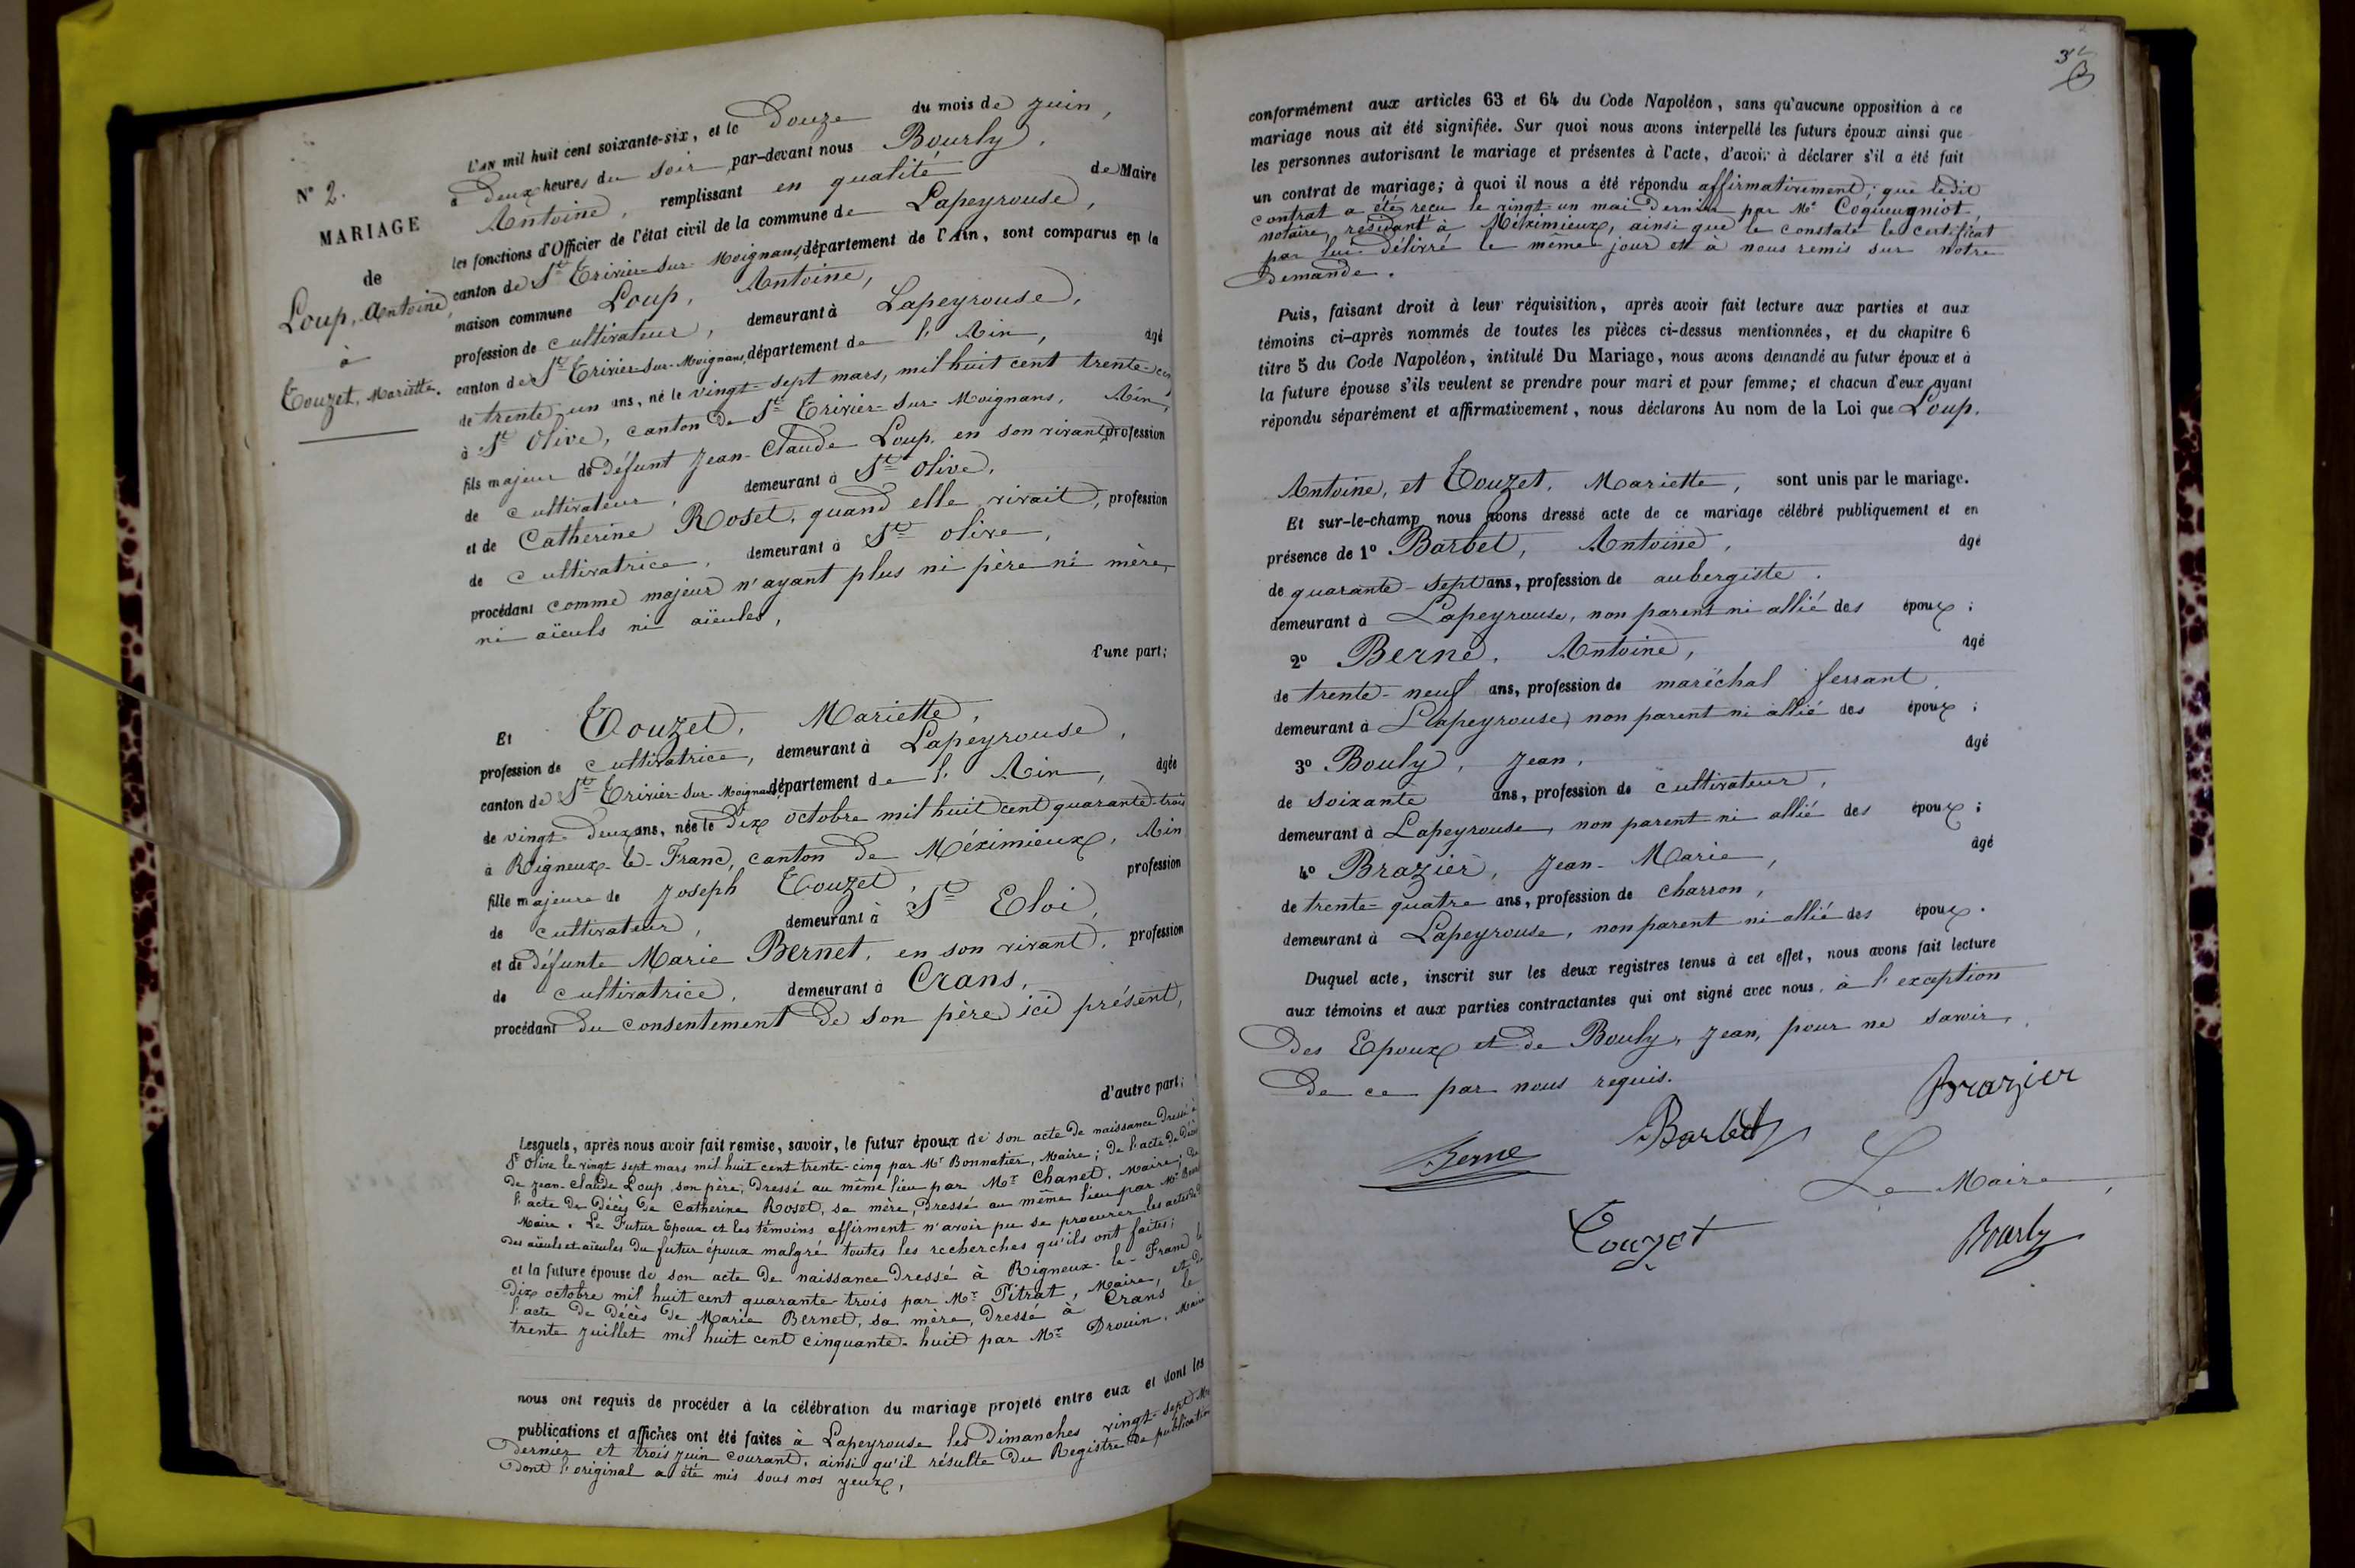 N° 2.
MARIAGE
de
Loup, Antoine,
à
Touzet, Mariette.
L'AN mil huit cent soixante-six, et le Douze du mois de juin,
à deux heures du soir, par-devant nous Bourly,
Antoine, remplissant en qualité de Maire
les fonctions d'Officier de l'état civil de la commune de Lapeyrouse,
canton de St Trivier-sur-Moignans, département de l'Ain, sont comparus en la
maison commune Loup, Antoine,
profession de cultivateur, demeurant à Lapeyrouse,
canton de St Trivier-sur-Moignans, département de l'Ain, âgé
de trente-un ans, né le vingt-sept mars, mil huit cent trente-cinq
à St Olive, canton de St Trivier-sur-Moignans, Ain,
fils majeur de Défunt Jean-Claude Loup, en son vivant, profession
de cultivateur, demeurant à St Olive,
et de Catherine Roset, quand elle vivait, profession
de cultivatrice, demeurant à St Olive,
procédant comme majeur n'ayant plus ni père ni mère,
ni aïeuls ni aïeules,
d'une part;
Et Touzet, Mariette,
profession de cultivatrice, demeurant à Lapeyrouse,
canton de St Trivier-sur-Moignans, département de l'Ain, âgée
de vingt-deux ans, née le Dix octobre mil huit cent quarante-trois
à Rigneux-le-Franc, canton de Méximieux, Ain
fille majeure de Joseph Touzet, profession
de cultivateur, demeurant à St Eloi,
et de défunte Marie Bernet, en son vivant, profession
de cultivatrice, demeurant à Crans,
procédant du consentement de son père ici présent,
d'autre part;
Lesquels, après nous avoir fait remise, savoir, le futur époux de son acte de naissance dressé à
St Olive le vingt sept mars mil huit cent trente-cinq par Mr Bonnatier, Maire; de l'acte de décès
de Jean-Claude Loup, son père, dressé au même lieu par Mr Chanet, Maire; de
l'acte de Décès de Catherine Roset, sa mère, dressé au même lieu par Mr
Maire. Le Futur Epoux et les témoins affirment n'avoir pu se procurer les actes de
des aïeuls et aïeules du futur époux malgré toutes les recherches qu'ils ont faites;
et la future épouse de son acte de naissance dressé à Rigneux-le-Franc le
Dix octobre mil huit cent quarante-trois par Mr Pitrat, Maire, et de
l'acte de Décès de Marie Bernet, sa mère, dressé à Crans le
trente juillet mil huit cent cinquante-huit par Mr Drouin, Maire
nous ont requis de procéder à la célébration du mariage projeté entre eux et dont les
publications et affiches ont été faites à Lapeyrouse les Dimanches vingt-sept Mai
dernier et trois juin courant, ainsi qu'il résulte du Registre de publication
dont l'original a été mis sous nos yeux,
3
conformément aux articles 63 et 64 du Code Napoléon, sans qu'aucune opposition à ce
mariage nous ait été signifiée. Sur quoi nous avons interpellé les futurs époux ainsi que
les personnes autorisant le mariage et présentes à l'acte, d'avoir à déclarer s'il a été fait
un contrat de mariage; à quoi il nous a été répondu affirmativement; que ledit
contrat a été reçu le vingt un mai dernier par Me Coqueugniot,
notaire, résidant à Méximieux, ainsi que le constate le certificat
par lui délivré le même jour et à nous remis sur notre
Demande.
Puis, faisant droit à leur réquisition, après avoir fait lecture aux parties et aux
témoins ci-après nommés de toutes les pièces ci-dessus mentionnées, et du chapitre 6
titre 5 du Code Napoléon, intitulé Du Mariage, nous avons demandé au futur époux et à
la future épouse s'ils veulent se prendre pour mari et pour femme; et chacun d'eux ayant
répondu séparément et affirmativement, nous déclarons Au nom de la Loi que Loup,
Antoine, et Touzet, Mariette, sont unis par le mariage.
Et sur-le-champ nous avons dressé acte de ce mariage célébré publiquement et en
présence de 1° Barbet, Antoine, âgé
de quarante-sept ans, profession de aubergiste.
demeurant à Lapeyrouse, non parent ni allié des époux;
2° Berne, Antoine, âgé
de trente-neuf ans, profession de maréchal ferrant,
demeurant à Lapeyrouse, non parent ni allié des époux;
3° Bouly, Jean, âgé
de soixante ans, profession de cultivateur,
demeurant à Lapeyrouse, non parent ni allié des époux;
4° Brazier, Jean-Marie, âgé
de trente-quatre ans, profession de charron,
demeurant à Lapeyrouse, non parent ni allié des époux.
Duquel acte, inscrit sur les deux registres tenus à cet effet, nous avons fait lecture
aux témoins et aux parties contractantes qui ont signé avec nous, à l'exception
des Epoux et de Bouly, Jean, pour ne savoir,
de ce par nous requis.
Brazier
Barbet
Berne
Le Maire,
Touzet
Bourly